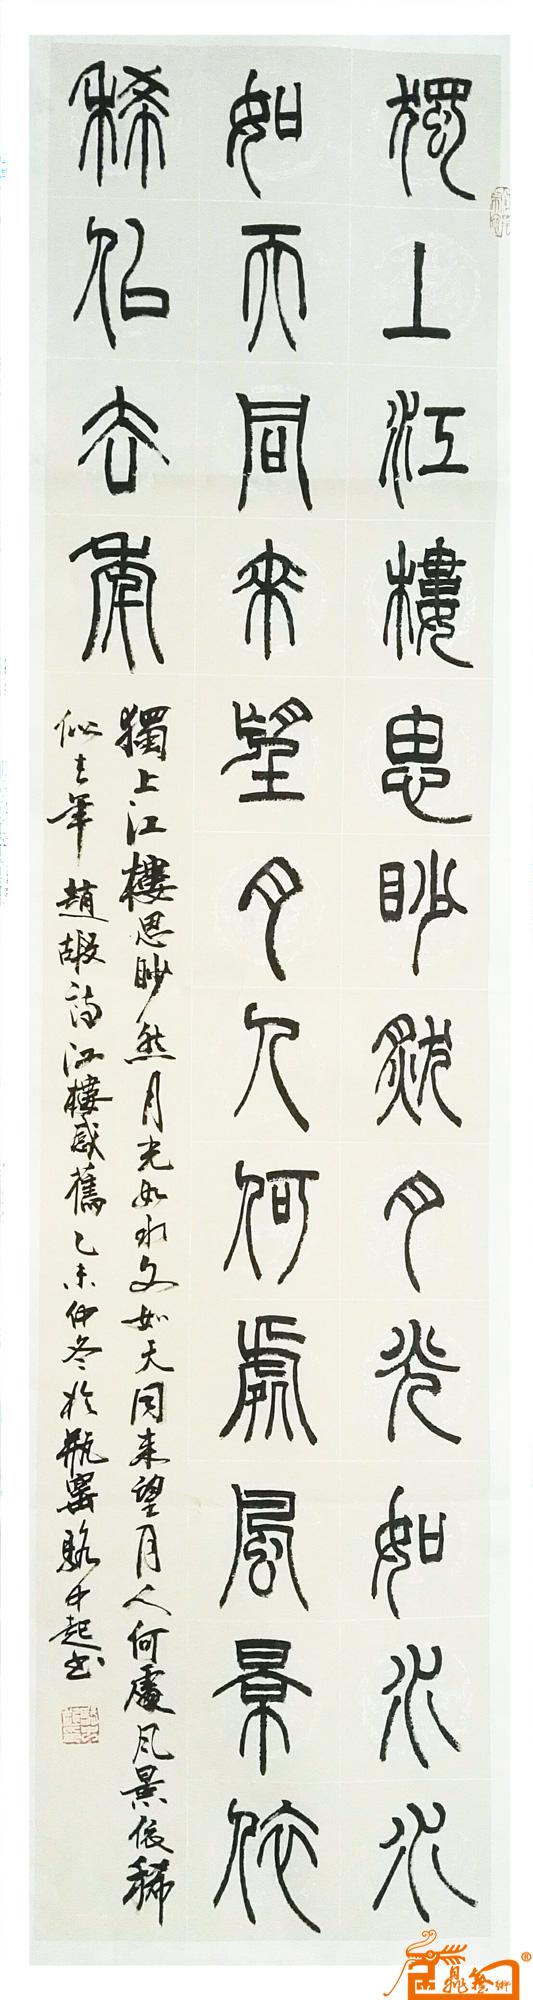 獨上江樓思眇然月光如水水
如天同來望月人何處風景依
稀佀去年
獨上江樓思眇然月光如水水如天同來望月人何處風景依稀
佀去年 趙嘏詩江樓感舊乙未仲冬於瓶窯駱中起书
鼎藝術